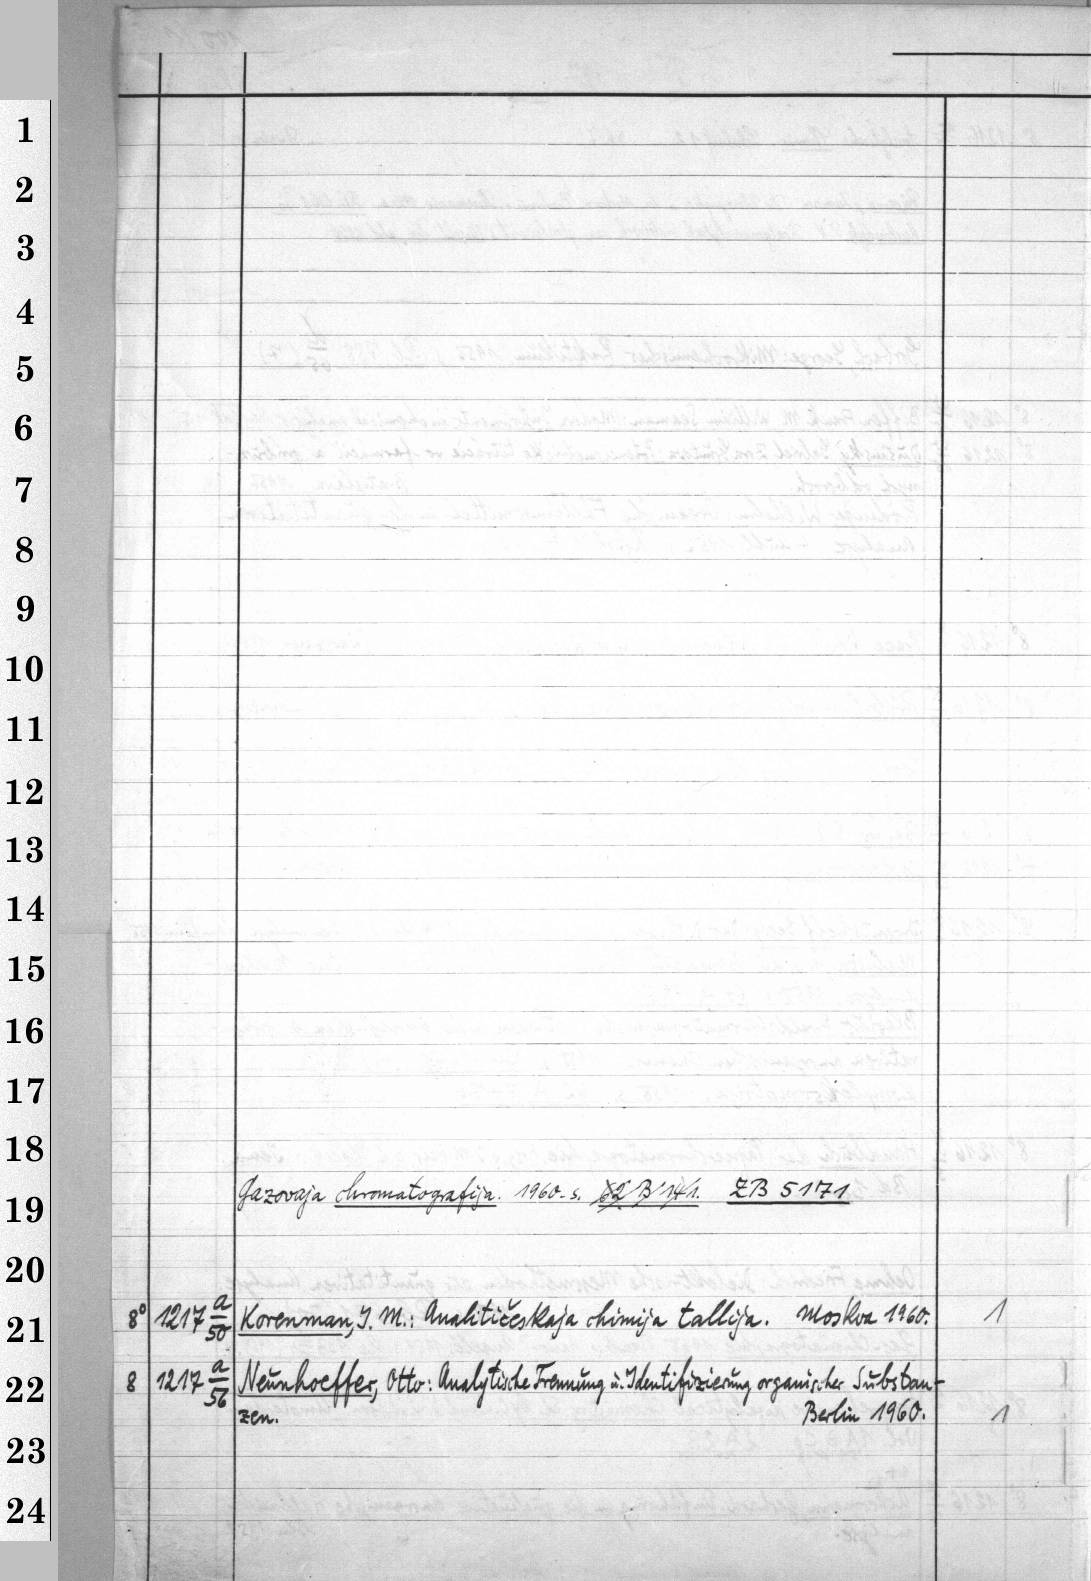 1
2
3
4
5
6
7
8
9
10
11
12
13
14
15
16
17
18
19
20
21
22
23
24
Gazovaja chromatografija. 1960. s. 62 B 141. ZB 5171
8° 1217 a/50 Korenman, I. M.: Analitičeskaja chimija tallija. Moskva 1960. 1
8 1217 a/56 Neunhoeffer, Otto: Analytische Trennung u. Identifizierung organischer Substan-
zen. Berlin 1960. 1